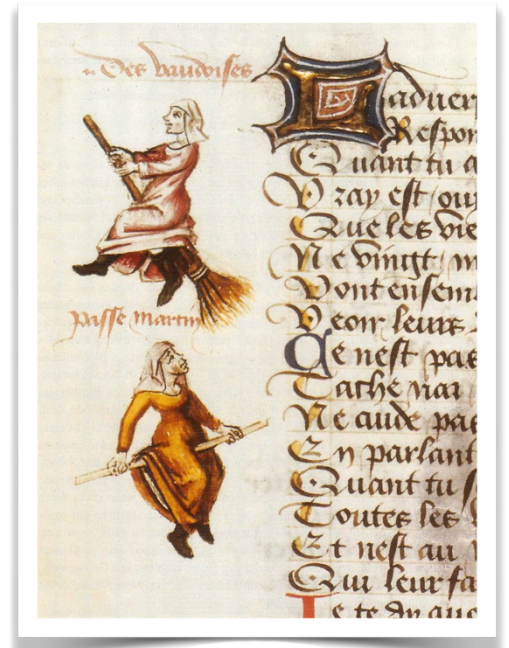 Des vaudoises
passe martin
Laduer
Respon
Quant tu a
Vray est ouy
Que les vie
Ne vingt m
Vont ensem
Veoir leurs
Ce nest pas
Tache nai
Ne cuide pas
En parlant
Quant tu
Toutes les
Et nest au
Qui leur fa
Je te dy aue